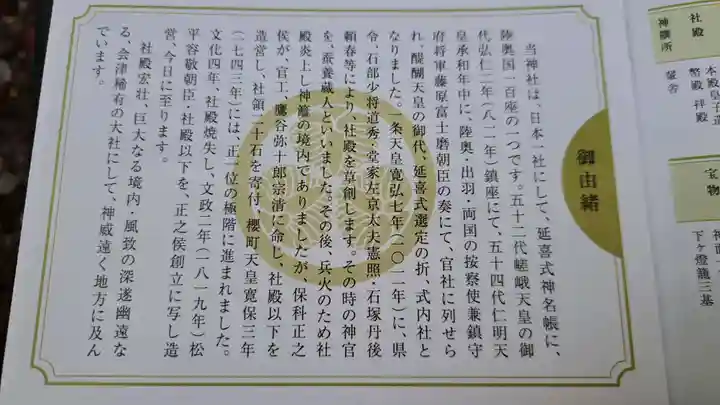 御由緒
当神社は、日本一社にして、延喜式神名帳に、
陸奥国一百座の一つです。五十二代嵯峨天皇の御
代弘仁二年(八一一年)鎮座にて、五十四代仁明天
皇承和年中に、陸奥・出羽・両国の按察使兼鎮守
府将軍藤原富士麿朝臣の奏にて、官社に列せら
れ、醍醐天皇の御代、延喜式選定の折、式内社と
なりました。一条天皇寛弘七年(一〇一一年)に、県
令、石部少将道秀・堂家左京太夫憲照・石塚丹後
頼春等により、社殿を草創します。その時の神官
を、蚕養蔵人といいました。その後、兵火のため社
殿炎上し神籬の境内でありましたが、保科正之
侯が、官工、鷹谷弥十郎宗清に命し、社殿以下を
造営し、社領二十石を寄付、櫻町天皇寛保三年
(一七四三年)には、正一位の極階に進まれました。
文化四年、社殿焼失し、文政二年(一八一九年)松
平容敬朝臣・社殿以下を、正之侯創立に写し造
営、今日に至ります。
社殿宏壮、巨大なる境内・風致の深邃幽遠な
る、会津稀有の大社にして、神威遠く地方に及ん
でいます。
社殿
本殿皇子造
幣殿 拝殿
神饌所
宝物
下ヶ燈籠三基